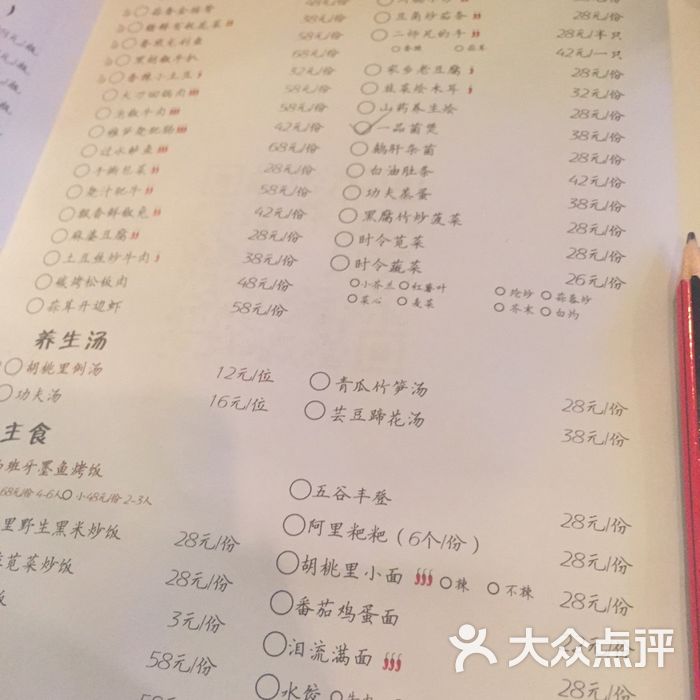 蒜香金排骨 58元/份
38元/份
香煎龙利鱼 58元/份
黑胡椒牛扒 68元/份
香辣小土豆 32元/份
大刀回锅肉 58元/份
泡椒牛肉 58元/份
雅笋烧肥肠 42元/份
过水鲈鱼 68元/份
手撕包菜 28元/份
烧汁肥牛 58元/份
飘香鲜椒兔 42元/份
麻婆豆腐 28元/份
土豆丝炒牛肉 38元/份
碳烤松板肉 48元/份
蒜茸开边虾 58元/份
豆角炒茄条 28元/份
二师兄的手 28元/半只
42元/一只
家乡老豆腐 28元/份
韭菜烩木耳 32元/份
山药养生烩 28元/份
一品菌煲 38元/份
鹅肝杂菌 28元/份
白油肚条 42元/份
功夫蒸蛋 38元/份
黑腐竹炒菠菜 28元/份
时令苋菜 28元/份
时令蔬菜 26元/份
小芥兰 红薯叶 炝炒 蒜蓉炒
菜心 麦菜 芥末 白灼
养生汤
胡桃里例汤 12元/位
功夫汤 16元/位
青瓜竹笋汤 28元/份
芸豆蹄花汤 38元/份
主食
班牙墨鱼烤饭
68元/份 4-6人 小48元/份 2-3人
里野生黑米炒饭 28元/份
苋菜炒饭 28元/份
饭 3元/份
58元/份
五谷丰登 28元/份
阿里粑粑（6个/份） 28元/份
胡桃里小面 辣 不辣 28元/份
番茄鸡蛋面
泪流满面 28元/份
水饺
大众点评